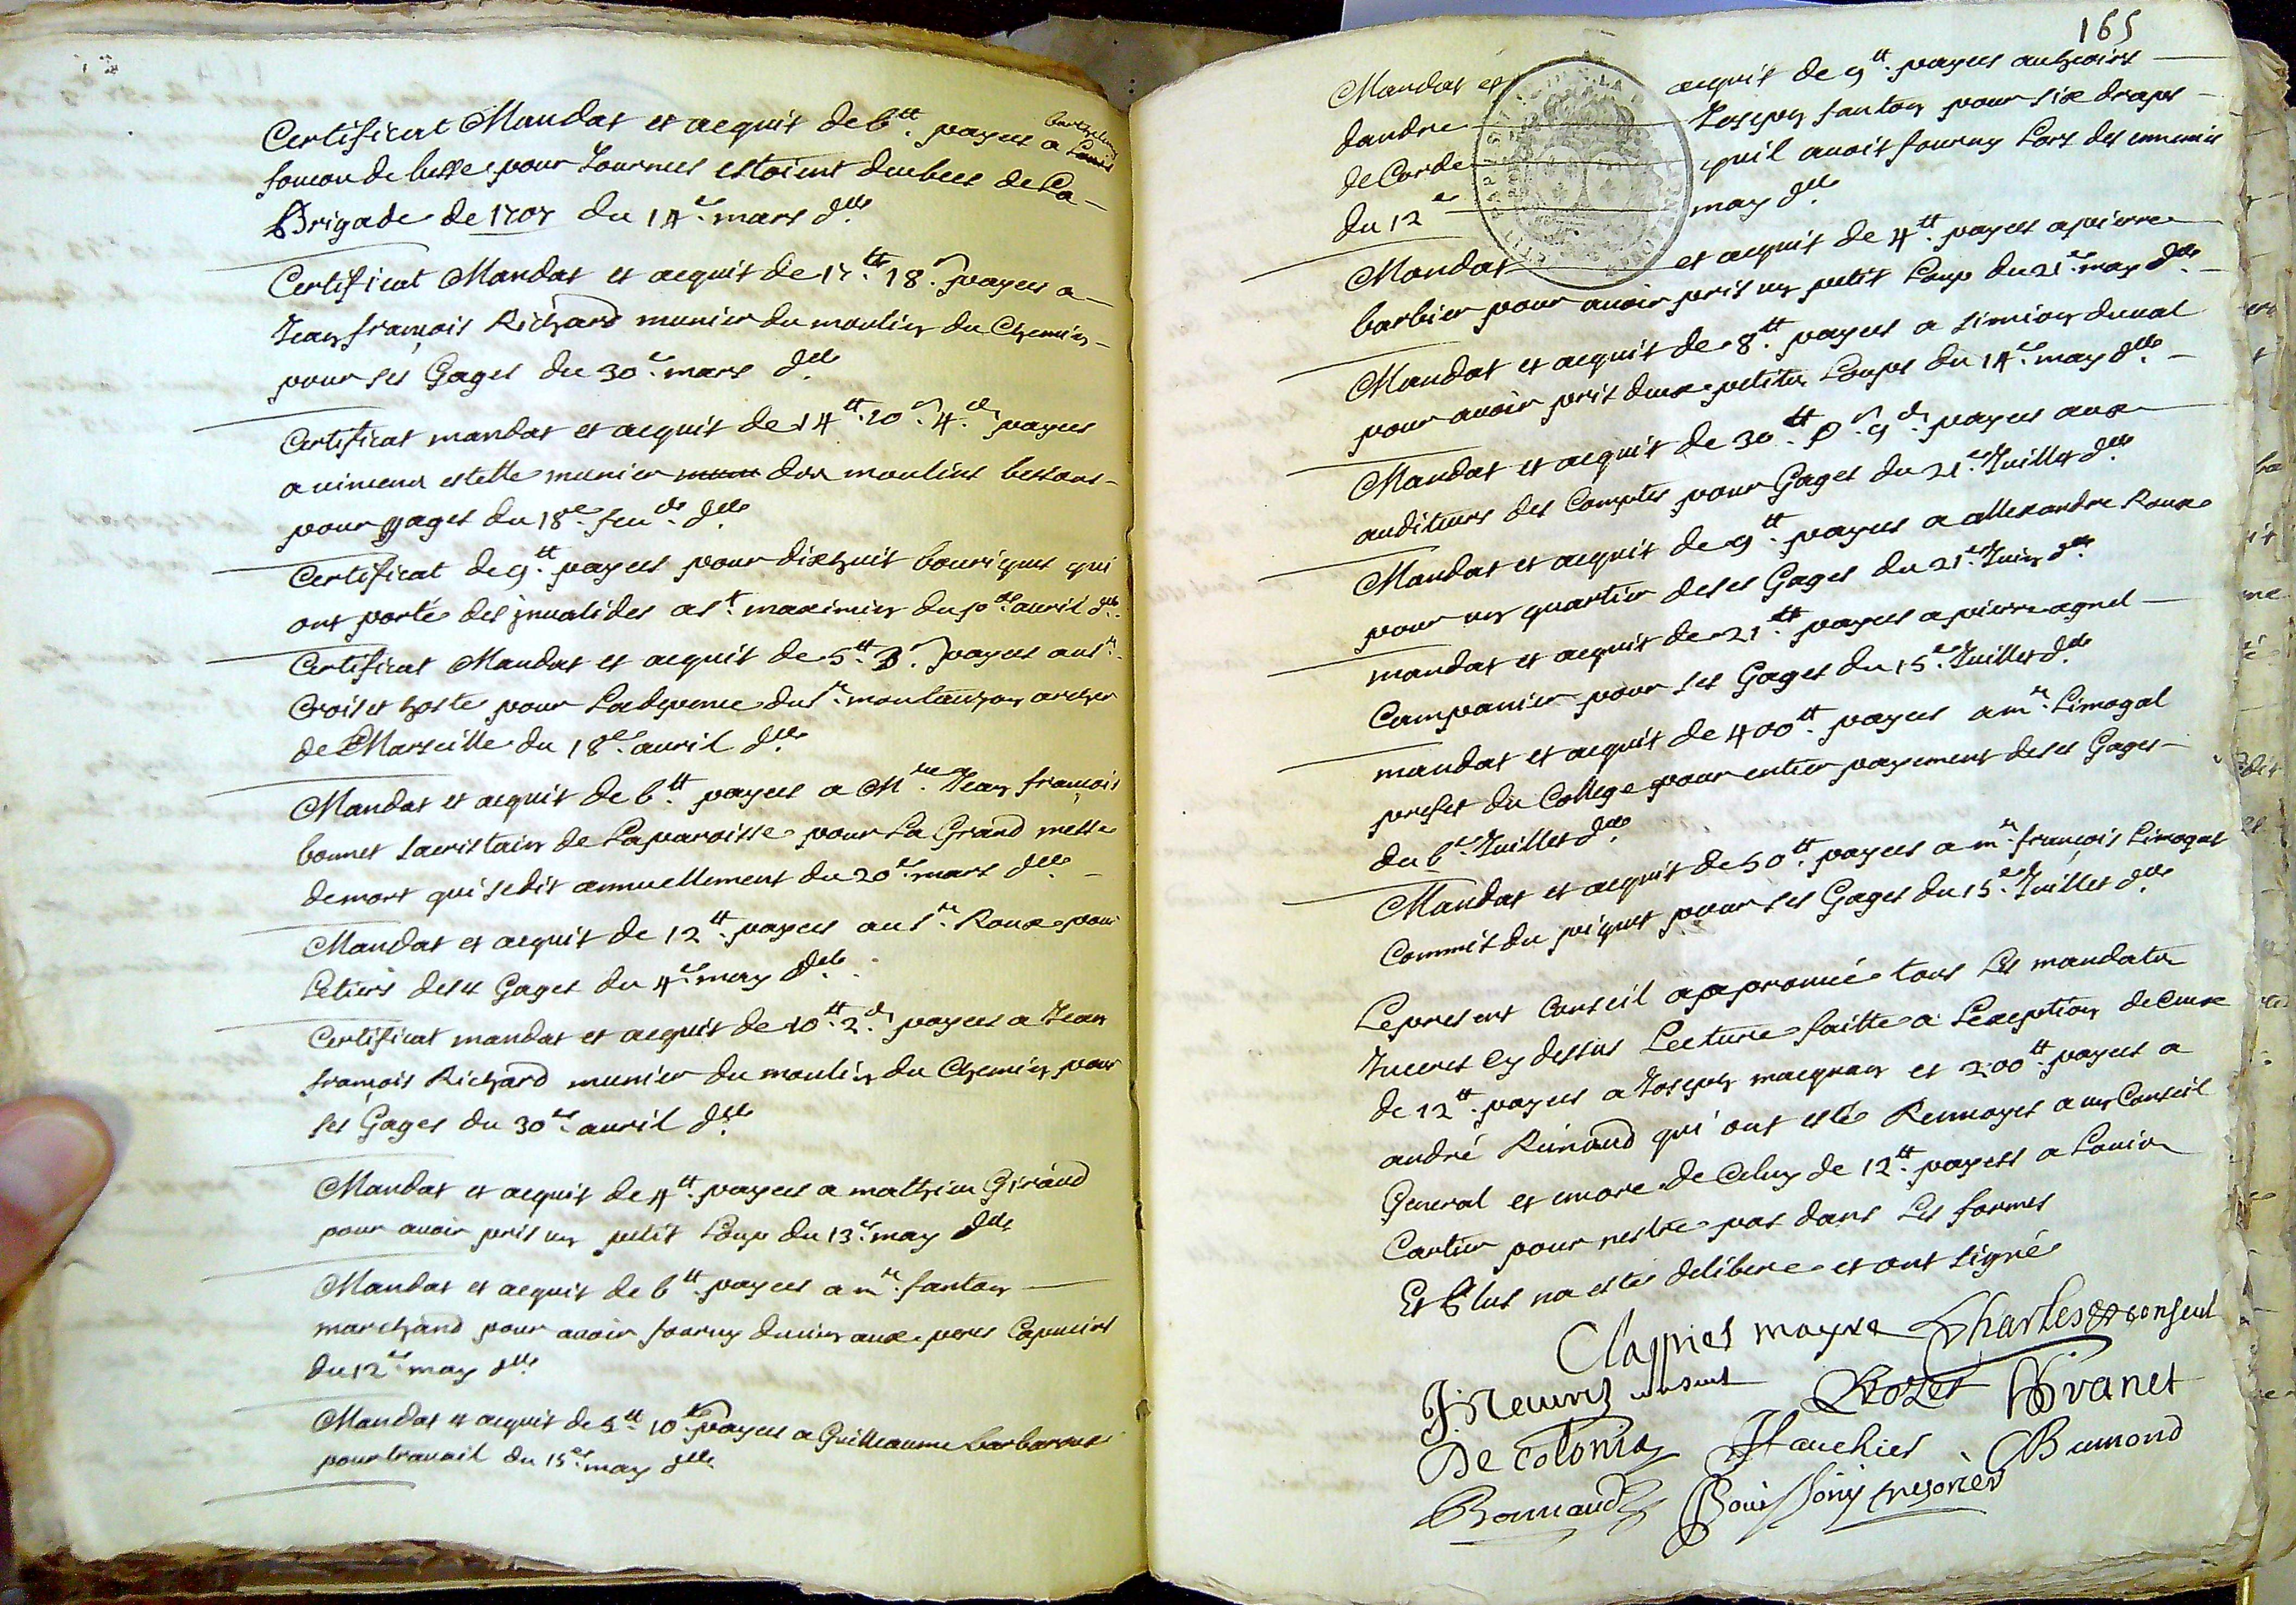 Certificat Mandat et acquit de 6tt. payees a Barthelemy
foucou de busse pour Journees estoient deubees de La
Brigade de 1707 du 14e. mars dlle.
Certificat Mandat et acquit de 17.tt 18.s payees a
Jean françois Richard munier du moulin du Chemin
pour ses Gages du 30e. mars dlle
Certificat mandat et acquit de 14tt. 10s. 4.d payees
a estelle munier des moulins bessons
pour gages du 18e. dlle
Certificat de 9tt. payees pour dixhuit bouriques qui
ont porté des jnvalides a st. maximin du avril dlle.
Certificat Mandat et acquit de 5tt. 3s. payees au sr.
Croiset hoste pour La depence du sr. archer
de Marseille du 18e. avril dlle
Mandat et acquit de 6tt. payees a Mre. Jean françois
bonnet sacristain de La paroisse pour La Grand messe
de mort qui se dit annuellement du 20e. mars dlle.
Mandat et acquit de 12tt. payees au sr. Roux pour
Le tiers de ses Gages du 4e. may dlle.
Certificat mandat et acquit de 10tt. 2.d payees a Jean
françois Richard munier du moulin du Chemin pour
ses Gages du 30e. avril dlle
Mandat et acquit de 4tt. payees a mathieu Giraud
pour avoir pris un petit Loup du 13e. may dlle
Mandat et acquit de 6tt. payees a mr. fanton
marchand pour avoir fourny du vin aux peres Capucins
du 12e. may dlle
Mandat et acquit de 5tt. 10s. payees a Guilleaume barbaroux
pour travail du 15e. may dlle
165
Mandat et acquit de 9tt. payees au hoirs
dandre Joseph fanton pour six draps
de Corde quil avoit fourny Lors des ennemis
du 12e may dlle.
Mandat et acquit de 4tt. payees a pierre
barbier pour avoir pris un petit Loup du 21e. may dlle.
Mandat et acquit de 8tt. payees a simion duval
pour avoir pris deux petits Loups du 14e. may dlle.
Mandat et acquit de 30tt. s. 9d. payees aux
auditeurs des Comptes pour Gages du 21e. Juillet dlle
Mandat et acquit de 9tt. payees a allexandre Roux
pour un quartier de ses Gages du 21e. Juin dlle.
mandat et acquit de 21tt. payees a pierre agnel
Campanier pour ses Gages du 15e. Juillet dlle
mandat et acquit de 400tt. payees a mr. Limogal
prefet du College pour entier payement de ses Gages
du 6e. Juillet dlle
Mandat et acquit de 50tt. payees a mr. françois Limogal
Commis du piquet pour ses Gages du 15e. Juillet dlle
Le present Conseil a approuvé tous Les mandats
Inceres Cy dessus Lecture faitte a Lexeption de Ceux
de 12tt. payees a Joseph magnan et 200tt. payees a
andré Rimbaud qui ont esté Renvoyes a un Conseil
General et encore de Celuy de 12tt. payees a Louis
Cartier pour nestre pas dans Les formes
Et Plus na este delibere et ont signé
Clapiers mayre Charles consul
consul Rozet
De Colonia
tresorier